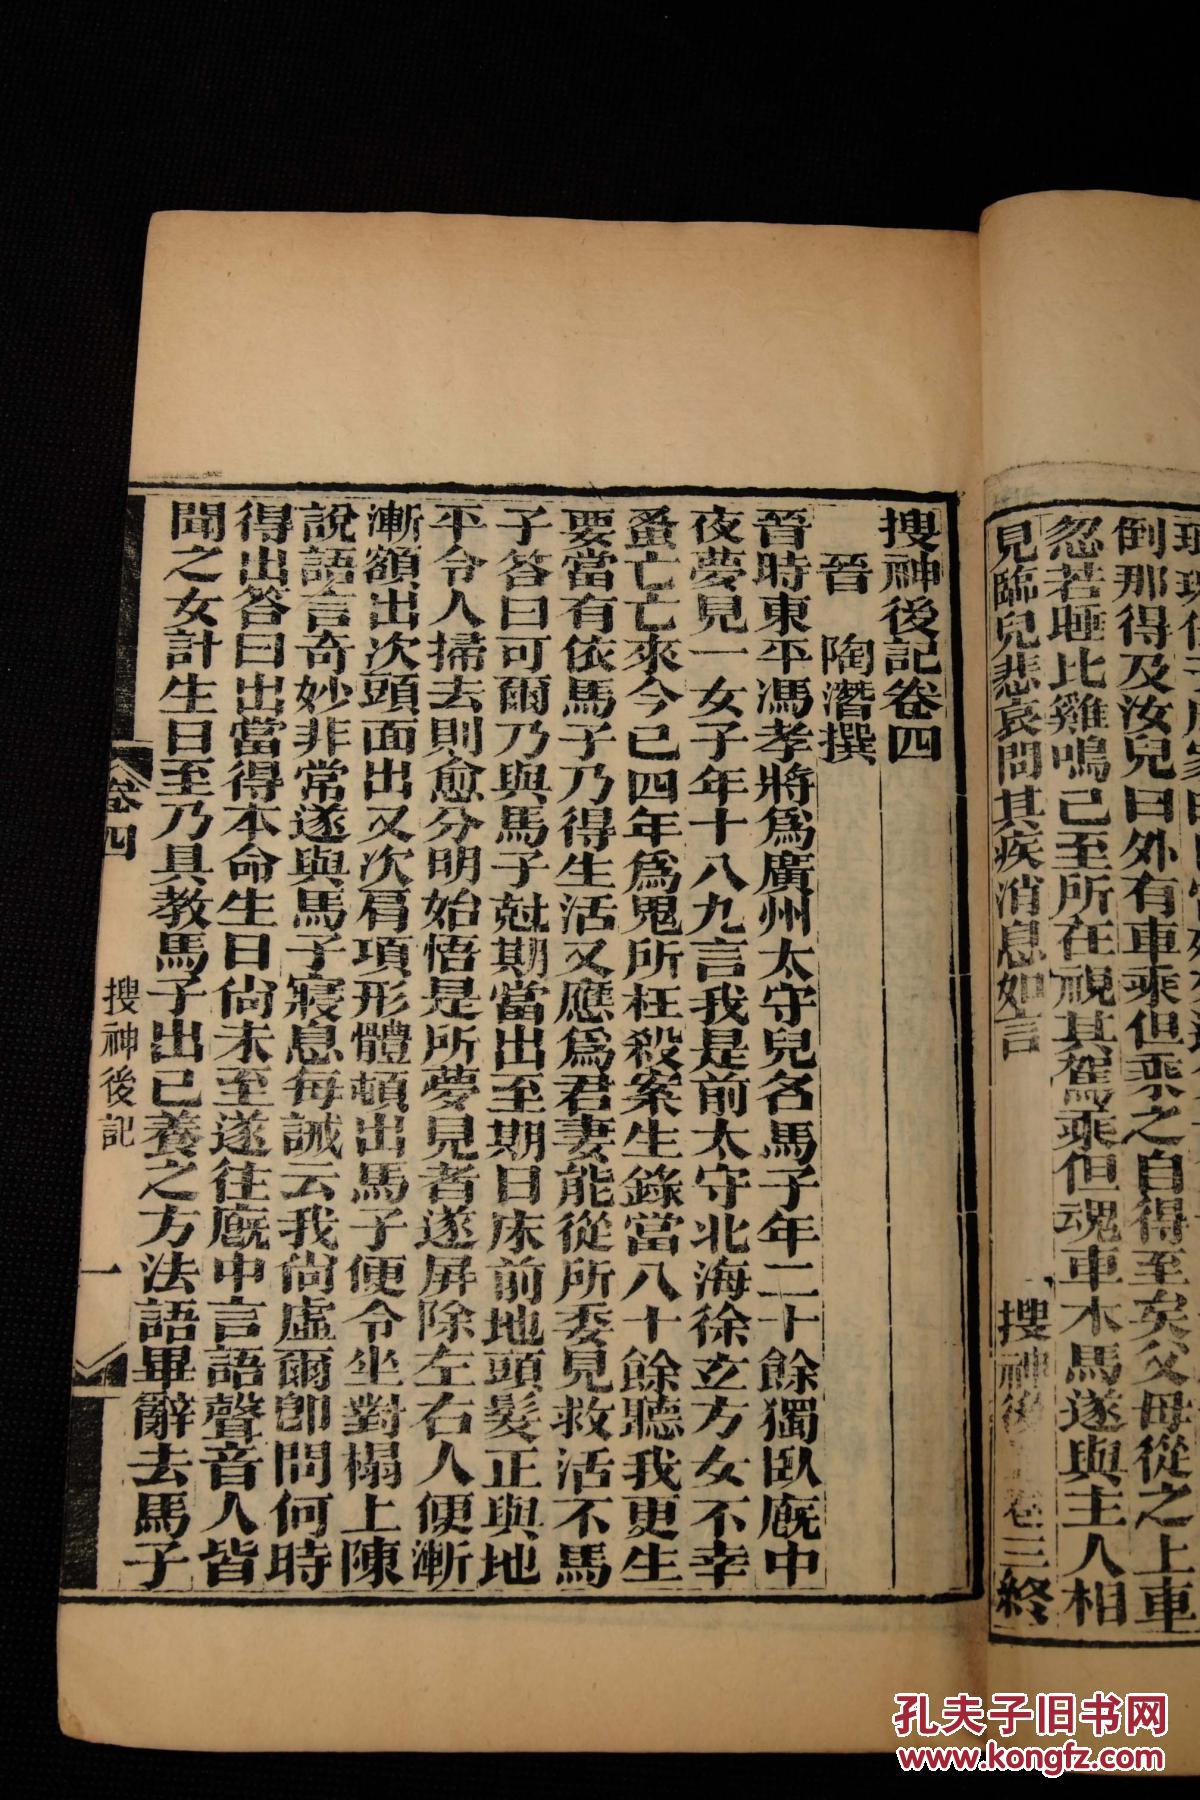 倒那得及汝兒曰外有車乘但乘之自得至矣父母從之上車
忽若睡比雞鳴已至所在視其駕乘但魂車木馬遂與主人相
見臨兒悲哀問其疾消息如言
搜神後 卷三終
搜神後記卷四
晉 陶潛撰
晉時東平馮孝將爲廣州太守兒名馬子年二十餘獨臥廐中
夜夢見一女子年十八九言我是前太守北海徐立方女不幸
蚤亡亡來今已四年爲鬼所枉殺案生錄當八十餘聽我更生
要當有依馬子乃得生活又應爲君妻能從所委見救活不馬
子答曰可爾乃與馬子尅期當出至期日床前地頭髮正與地
平令人掃去則愈分明始悟是所夢見者遂屏除左右人便漸
漸額出次頭面出又次肩項形體頓出馬子便令坐對榻上陳
說語言奇妙非常遂與馬子寢息每誡云我尙虛爾卽問何時
得出答曰出當得本命生日尙未至遂往廐中言語聲音人皆
聞之女計生日至乃具教馬子出己養之方法語畢辭去馬子
卷四 搜神後記 一
孔夫子旧书网
www.kongfz.com